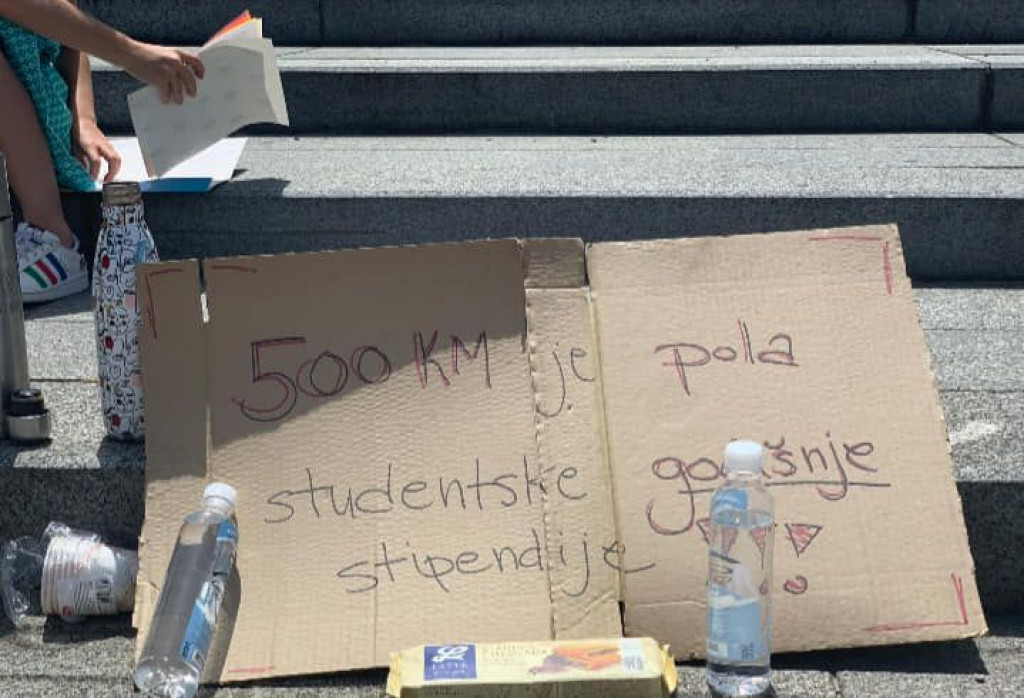 500 KM je pola
studentske godišnje
stipendije !!!
LASTA